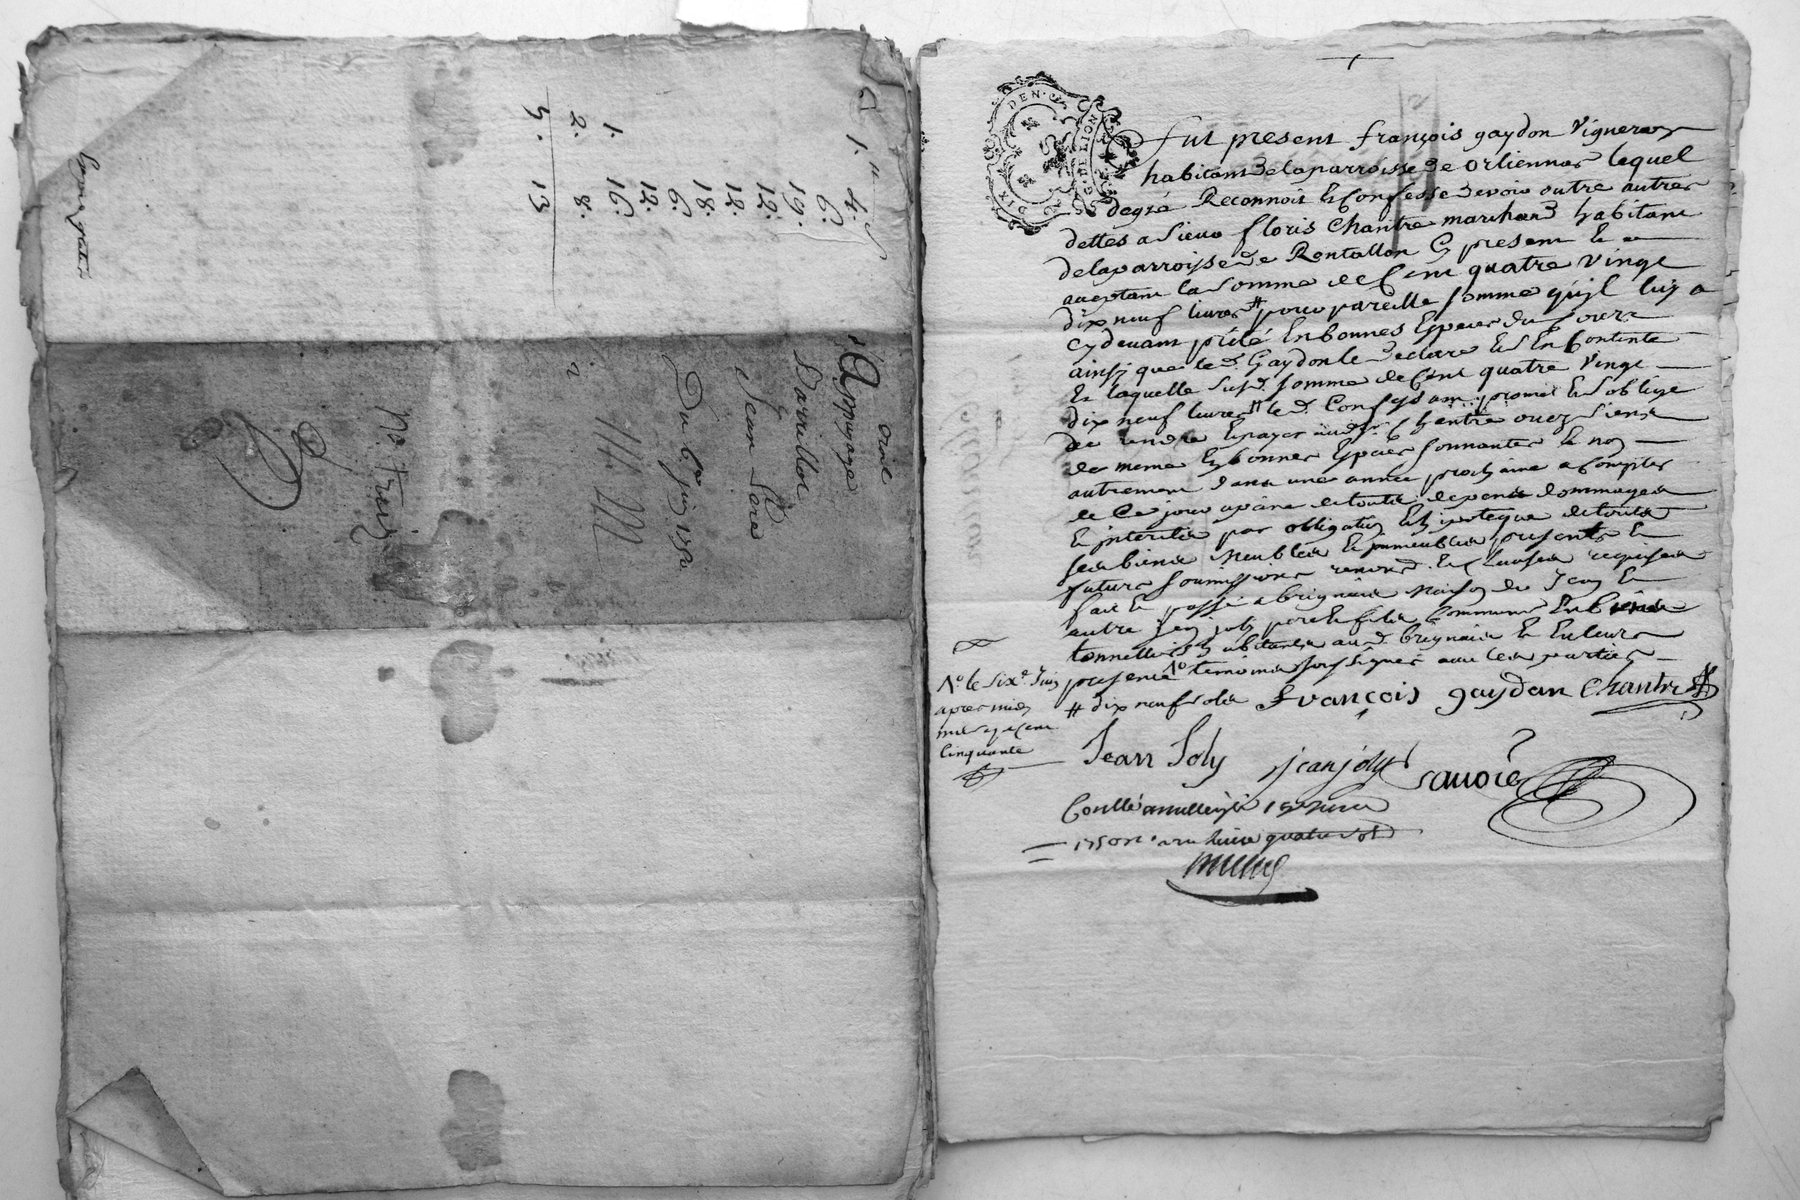 5 1.ʰ 4. s
6.
19.
12.
12.
18.
6.
12.
16.
1. 8.
2.
5. 13
droit
Apprayage
Darrillon
a
Jean Sere
Du 6e juin 1750
No Trois
DIX DEN.
G. DE LION
fut present françois gaydon Vigneron
habitant de la parroisse de orliennas lequel
de gré Reconnoit & Confesse devoir outre autres
dettes a Sieur floris Chantre marchand habitant
de la parroisse de Rontallon Cy present & —
aceptant la somme de Cent quatre vingt
dix neuf livres # pour pareille somme quil luy a
cy devant prété En bonnes Especes du Cours
ainsy que led. Gaydon le declare Et En Contente
Et laquelle susd. somme de Cent quatre vingt —
dix neuf livres # led. Confessant promet Et s oblige
de rendre & payer aud. sr. Chantre ou ez siens
de meme En bonnes Especes sonnantes & non —
autrement dans une année prochaine a Compter
de Ce jour a peine de touts depens dommages
& interets par obligation & hipoteque de touts
ses biens meubles & immeubles presents &
futurs soumissions renond. & Clauses requises
fait & passé a brignais maison de Jean &
autre Jean joly pere & fils Communs En biens
tonnelliers habitants aud. brignais & En leurs
presence 1o temoins soussignés avec les parties —
# dix neuf sols
1o le six.e Juin
apres midy
mil sept cent
Cinquante
françois gaydan Chantre
Jean Joly jean joly Savoie
Conllé a
1750 R. une livre quatre sols